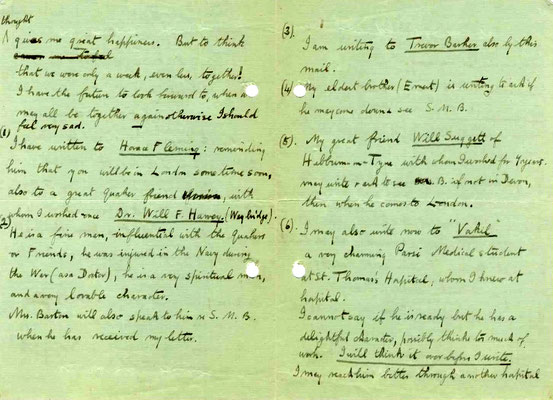 thought
gives me great happiness. But to think
that we were only a week, even less, together!
I have the future to look forward to, when we
may all be together again otherwise I should
feel very sad.
(1) I have written to Horace Fleming: reminding
him that you will be in London some time soon,
also to a great Quaker friend, with
whom I worked once Dr. Will F. Harvey. (Weybridge).
(2) He is a fine man, influential with the Quakers
or Friends, he was injured in the Navy during
the War (as a Doctor), he is a very spiritual man,
and a very lovable character.
Mrs. Barton will also speak to him re S. M. B.
when he has received my letter.
(3). I am writing to Trevor Barker also by this
mail.
(4) My eldest brother (Ernest) is writing to ask if
he may come down & see S. M. B.
(5). My great friend Will Suggett of
Hebburn-on-Tyne with whom I worked for 4 years.
may write & ask to see B. if not in Devon,
then when he comes to London.
(6). I may also write now to "Vakil"
a very charming Parsi Medical student
at St. Thomas's Hospital, whom I knew at
hospital.
I cannot say if he is ready but he has a
delightful character, possibly thinks too much of
work. I will think it over before I write.
I may reach him better through another hospital